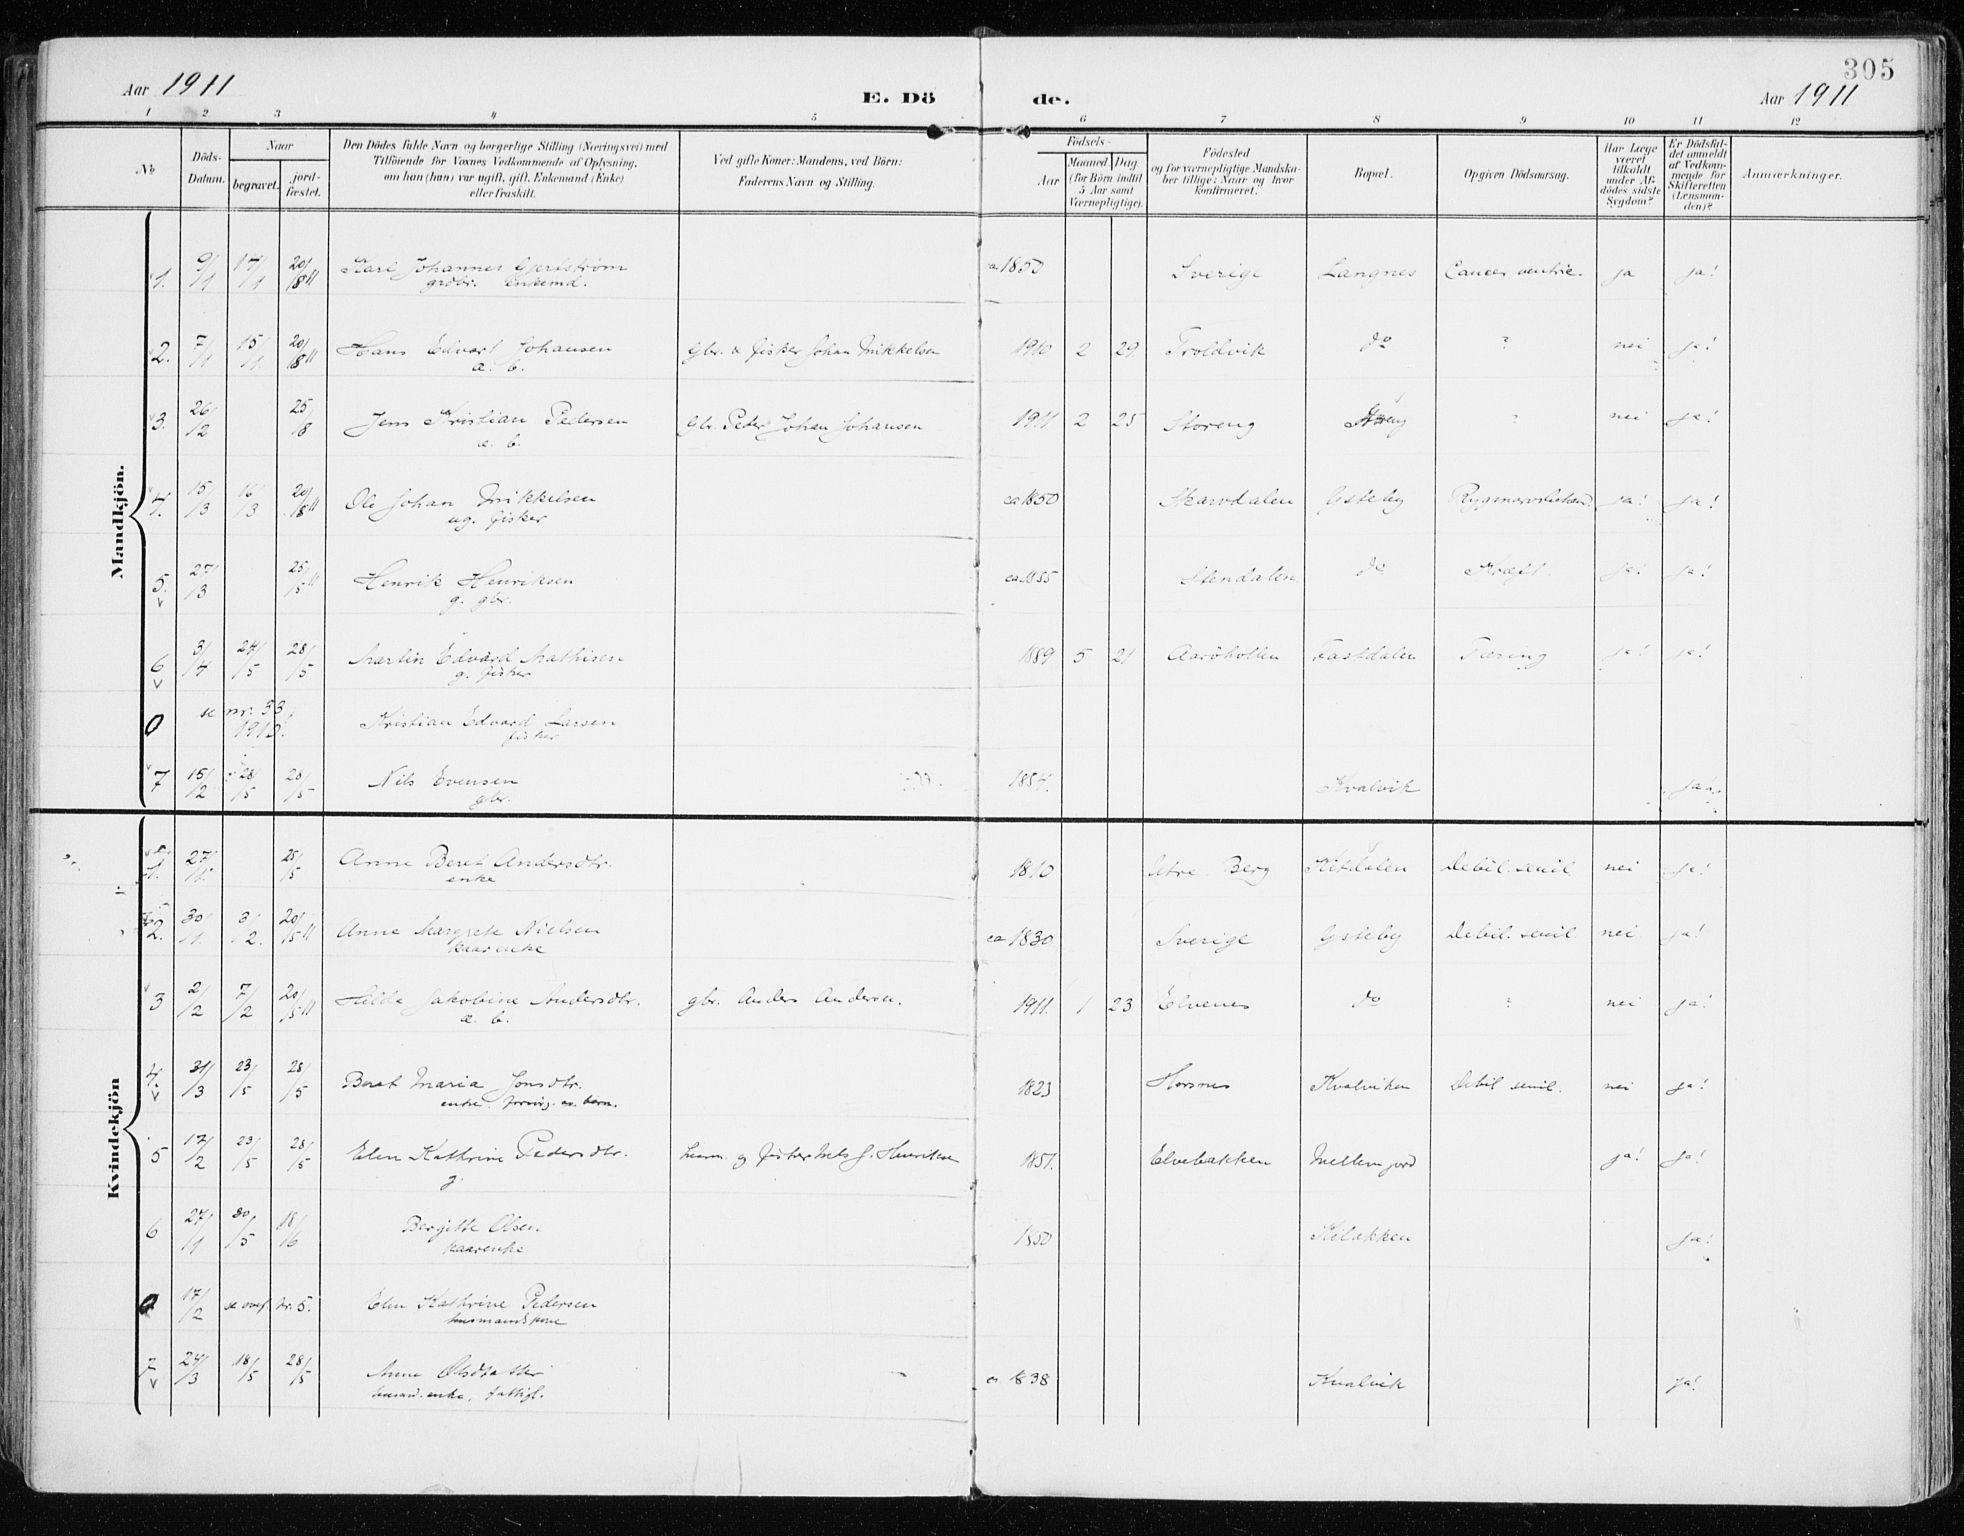 305
Aar 1911
E. Dö de.
Aar 1911
1 2 3 4 5 6 7 8 9 10 11 12
No
Döds-Datum.
Naar
begravet.
jord-fæstet.
Den Dödes fulde Navn og borgerlige Stilling (Næringsvei) med
Tilföiende for Voxnes Vedkommende af Oplysning,
om han (hun) var ugift, gift, Enkemand (Enke)
eller fraskilt.
Ved gifte Koner: Mandens, ved Börn:
Faderens Navn og Stilling.
Födsels-
Aar
Maaned. Dag.
(for Börn indtil
5 Aar samt
Værnepligtige).
Födested
og for værnepligtige Mandska-
ber tillige: Naar og hvor
konfirmeret.
Bopæl.
Opgiven Dödsaarsag.
Har Læge
været
tilkaldt
under Af-
dödes sidste
Sygdom?
Er Dödsfal-
det anmeldt
af Vedkom-
mende for
Skifteretten
(Lensman-
den)?
Anmærkninger.
Mandkjön.
1. 9/1 17/1 20/8 11 Karl Johannes Gjertström ca 1850 Sverige Langnes Cancer ventric. ja ja!
grdbr. enkemd.
2. 7/1 15/1 20/8 11 Hans Edvart Johansen Gbr. & fisker Johan Mikkelsen 1910 2 29 Troldvik do ? nei ja!
æ. b.
3. 26/2 25/8 Jens Kristian Pedersen Gbr. Peder Johan Johansen 1911 2 25 Storeng ? nei ja!
æ. b.
4. 15/3 16/3 20/8 11 Ole Johan Mikkelsen ca 1850 Skarvdalen Gsteby ja! ja!
ug. fisker
5. 27/3 25/5 11 Henrik Henriksen ca. 1855 Stendalen do Kræft. ja! ja!
g. gbr.
6 3/4 24/5 28/5 Martin Edvard Mathisen 1889 5 21 Aaröholten Fastdalen Tæring ja! ja!
g. fisker
0 se nr. 33 Kristian Edvard Larsen
fisker
7 15/2 28/5 28/5 Nils Evensen 1854. Kvalvik ja!
gbr.
Kvindekjön
1. 27/1. 25/5 Anne Beret Andersdtr. 1810 Berg Kitdalen Debil. senil nei ja!
enke
2. 30/1. 3/2. 20/5 11 Anne Margrete Nielsen ca 1830 Sverige Gsteby Debil. senil nei ja!
kaarenke
3 2/2 7/2 20/5 11 Hilda Jakobine Andersdtr. gbr. Anders Andersen. 1911. 1 23 Elvenes do ? nei ja!
æ. b.
4. 31/3 23/5 28/5 Beret Maria Jonsdtr. 1823 Horsnes Kvalviken Debil senil. nei ja!
enke.
5 17/2 23/5 28/5 Elen Kathrine Pedersdtr. 1851. Elvebakken Mellemjord ja! ja!
g.
6 27/1 30/5 18/6 Bergitte Olsen. 1850 Kilakken ja!
kaarenke
0 17/2 se ovf. nr. 5. Elen Kathrine Pedersen
husmandskone
7 24/3 18/5 28/5 Anne Olsdatter ca 1838 Kvalvik ja!
enke, fattigl.